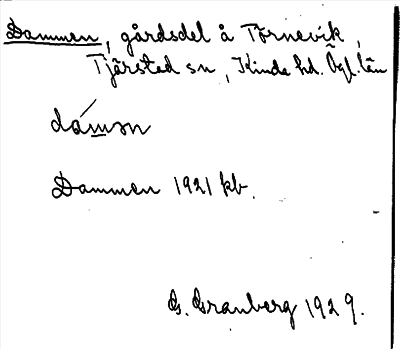 Dammen, gårdsdel å Törnevik,
Tjärstad sn, Kinda hd. Ögl. län
dámən
Dammen 1921 kb.
G. Granberg 1929.